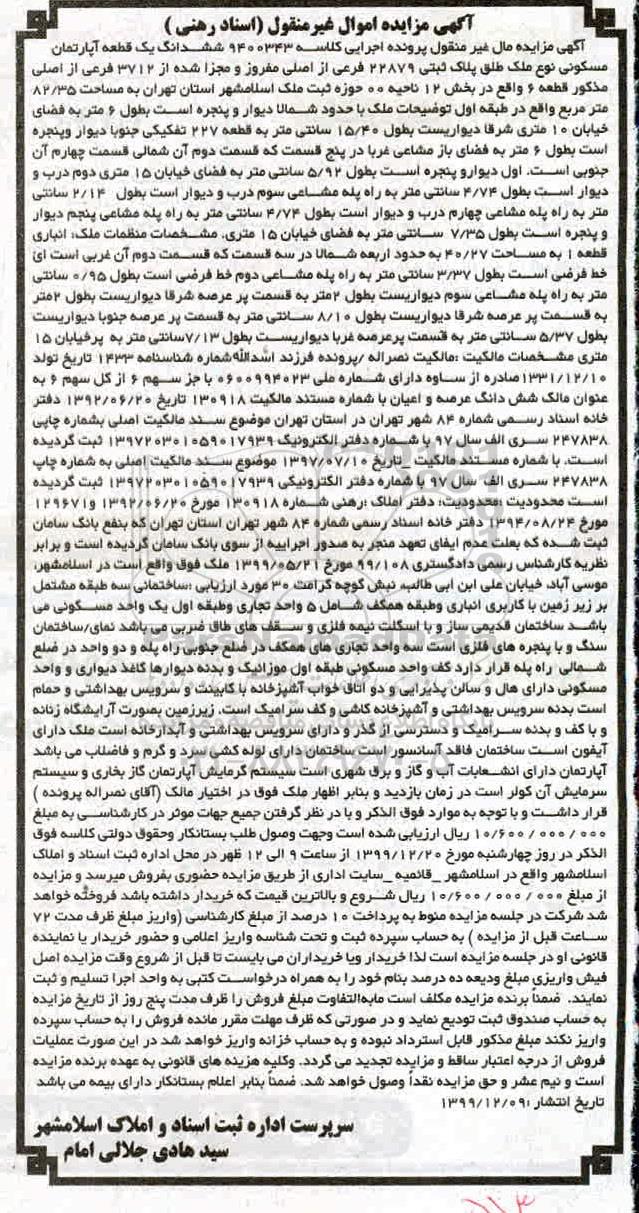 آگهی مزایده اموال غیرمنقول (اسناد رهنی )
آگهی مزایده مال غیر منقول پرونده اجرایی کلاسه ۹۴۰۰۳۴۳ ششدانگ یک قطعه آپارتمان
مسکونی نوع ملک طلق پلاک ثبتی ۲۲۸۷۹ فرعی از اصلی مفروز و مجزا شده از ۳۷۱۲ فرعی از اصلی
مذکور قطعه ۶ واقع در بخش ۱۲ ناحیه ۰۰ حوزه ثبت ملک اسلامشهر استان تهران به مساحت ۸۲/۳۵
متر مربع واقع در طبقه اول توضیحات ملک با حدود شمالا دیوار و پنجره است بطول ۶ متر به فضای
خیابان ۱۰ متری شرقا دیواریست بطول ۱۵/۴۰ سانتی متر به قطعه ۲۲۷ تفکیکی جنوبا دیوار وپنجره
است بطول ۶ متر به فضای باز مشاعی غربا در پنج قسمت که قسمت دوم آن شمالی قسمت چهارم آن
جنوبی است. اول دیوارو پنجره است بطول ۵/۹۲ سانتی متر به فضای خیابان ۱۵ متری دوم درب و
دیوار است بطول ۴/۷۴ سانتی متر به راه پله مشاعی سوم درب و دیوار است بطول ۲/۱۴ سانتی
متر به راه پله مشاعی چهارم درب و دیوار است بطول ۴/۷۴ سانتی متر به راه پله مشاعی پنجم دیوار
و پنجره است بطول ۷/۳۵ سانتی متر به فضای خیابان ۱۵ متری. مشخصات منظمات ملک: انباری
قطعه ۱ به مساحت ۴۰/۲۷ به حدود اربعه شمالا در سه قسمت که قسمت دوم آن غربی است ای
خط فرضی است بطول ۳/۳۷ سانتی متر به راه پله مشاعی دوم خط فرضی است بطول ۰/۹۵ سانتی
متر به راه پله مشاعی سوم دیواریست بطول ۲متر به قسمت پر عرصه شرقا دیواریست بطول ۲متر
به قسمت پر عرصه شرقا دیواریست بطول ۸/۱۰ سانتی متر به قسمت پر عرصه جنوبا دیواریست
بطول ۵/۳۷ سانتی متر به قسمت پرعرصه غربا دیواریست بطول ۷/۱۳سانتی متر به پرخیابان ۱۵
متری مشخصات مالکیت :مالکیت نصراله /پرونده فرزند اسدالله شماره شناسنامه ۱۴۳۳ تاریخ تولد
۱۳۳۱/۱۲/۱۰صادره از ساوه دارای شماره ملی ۰۶۰۰۹۹۴۰۲۳ با جز سهم ۶ از کل سهم ۶ به
عنوان مالک شش دانگ عرصه و اعیان با شماره مستند مالکیت ۱۳۰۹۱۸ تاریخ ۱۳۹۲/۰۶/۲۰ دفتر
خانه اسناد رسمی شماره ۸۴ شهر تهران در استان تهران موضوع سند مالکیت اصلی بشماره چاپی
۲۴۷۸۳۸ سری الف سال ۹۷ با شماره دفتر الکترونیک ۱۳۹۷۲۰۳۰۱۰۵۹۰۱۷۹۳۹ ثبت گردیده
است. با شماره مستند مالکیت _تاریخ ۱۳۹۷/۰۷/۱۰ موضوع سند مالکیت اصلی به شماره چاپ
۲۴۷۸۳۸ سری الف سال ۹۷ با شماره دفتر الکترونیکی ۱۳۹۷۲۰۳۰۱۰۵۹۰۱۷۹۳۹ ثبت گردیده
است محدودیت :محدودیت: دفتر املاک :رهنی شماره ۱۳۰۹۱۸ مورخ ۱۳۹۲/۰۶/۲۰ و۱۲۹۶۷۱
مورخ ۱۳۹۴/۰۸/۲۴ دفتر خانه اسناد رسمی شماره ۸۴ شهر تهران استان تهران که بنفع بانک سامان
ثبت شده که بعلت عدم ایفای تعهد منجر به صدور اجراییه از سوی بانک سامان گردیده است و برابر
نظریه کارشناس رسمی دادگستری ۹۹/۱۰۸ مورخ ۱۳۹۹/۰۵/۲۱ ملک فوق واقع است در اسلامشهر،
موسی آباد، خیابان علی ابن ابی طالب، نبش کوچه کرامت ۳۰ مورد ارزیابی :ساختمانی سه طبقه مشتمل
بر زیر زمین با کاربری انباری وطبقه همکف شامل ۵ واحد تجاری وطبقه اول یک واحد مسکونی می
باشد ساختمان قدیمی ساز و با اسکلت نیمه فلزی و سقف های طاق ضربی می باشد نمای/ساختمان
سنگ و با پنجره های فلزی است سه واحد تجاری های همکف در ضلع جنوبی راه پله و دو واحد در ضلع
شمالی راه پله قرار دارد کف واحد مسکونی طبقه اول موزائیک و بدنه دیوارها کاغذ دیواری و واحد
مسکونی دارای هال و سالن پذیرایی و دو اتاق خواب آشپزخانه با کابینت و سرویس بهداشتی و حمام
است بدنه سرویس بهداشتی و آشپزخانه کاشی و کف سرامیک است. زیرزمین بصورت آرایشگاه زنانه
و با کف و بدنه سرامیک و دسترسی از گذر و دارای سرویس بهداشتی و آبدارخانه است ملک دارای
آیفون است ساختمان فاقد آسانسور است ساختمان دارای لوله کشی سرد و گرم و فاضلاب می باشد
آپارتمان دارای انشعابات آب و گاز و برق شهری است سیستم گرمایش آپارتمان گاز بخاری و سیستم
سرمایش آن کولر است در زمان بازدید و بنابر اظهار ملک فوق در اختیار مالک (آقای نصراله پرونده )
قرار داشت و با توجه به موارد فوق الذکر و با در نظر گرفتن جمیع جهات موثر در کارشناسی به مبلغ
۱۰/۶۰۰/۰۰۰/۰۰۰ ریال ارزیابی شده است وجهت وصول طلب بستانکار وحقوق دولتی کلاسه فوق
الذکر در روز چهارشنبه مورخ ۱۳۹۹/۱۲/۲۰ از ساعت ۹ الی ۱۲ ظهر در محل اداره ثبت اسناد و املاک
اسلامشهر واقع در اسلامشهر _قائمیه _سایت اداری از طریق مزایده حضوری بفروش میرسد و مزایده
از مبلغ ۱۰/۶۰۰/۰۰۰/۰۰۰ ریال شروع و بالاترین قیمت که خریدار داشته باشد فروخته خواهد
شد شرکت در جلسه مزایده منوط به پرداخت ۱۰ درصد از مبلغ کارشناسی (واریز مبلغ ظرف مدت ۷۲
ساعت قبل از مزایده ) به حساب سپرده ثبت و تحت شناسه واریز اعلامی و حضور خریدار یا نماینده
قانونی او در جلسه مزایده است لذا خریدار ویا خریداران می بایست تا قبل از شروع وقت مزایده اصل
فیش واریزی مبلغ ودیعه ده درصد بنام خود را به همراه درخواست کتبی به واحد اجرا تسلیم و ثبت
نمایند. ضمناً برنده مزایده مکلف است مابه‌التفاوت مبلغ فروش را ظرف مدت پنج روز از تاریخ مزایده
به حساب صندوق ثبت تودیع نماید و در صورتی که ظرف مهلت مقرر مانده فروش را به حساب سپرده
واریز نکند مبلغ مذکور قابل استرداد نبوده و به حساب خزانه واریز خواهد شد در این صورت عملیات
فروش از درجه اعتبار ساقط و مزایده تجدید می گردد. وکلیه هزینه های قانونی به عهده برنده مزایده
است و نیم عشر و حق مزایده نقداً وصول خواهد شد. ضمناً بنابر اعلام بستانکار دارای بیمه می باشد
تاریخ انتشار :۱۳۹۹/۱۲/۰۹
سرپرست اداره ثبت اسناد و املاک اسلامشهر
سید هادی جلالی امام